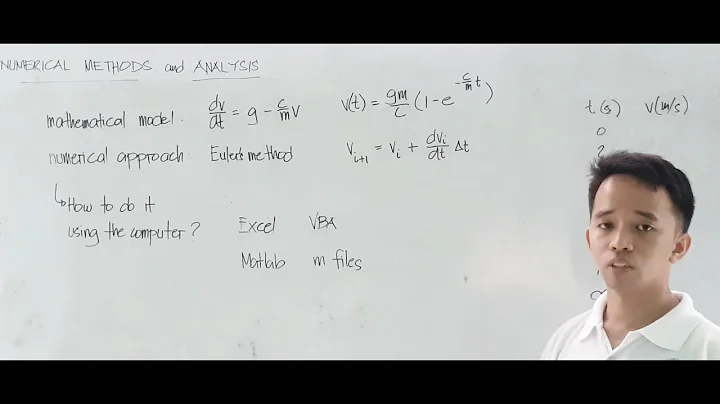 NUMERICAL METHODS and ANALYSIS
mathematical model: dv/dt = g - c/m v v(t) = gm/c (1 - e^(-c/m t))
t(s) v(m/s)
0
2
numerical approach: Euler's method v_{i+1} = v_i + dv_i/dt Δt
↳ How to do it
using the computer? Excel VBA
Matlab m files